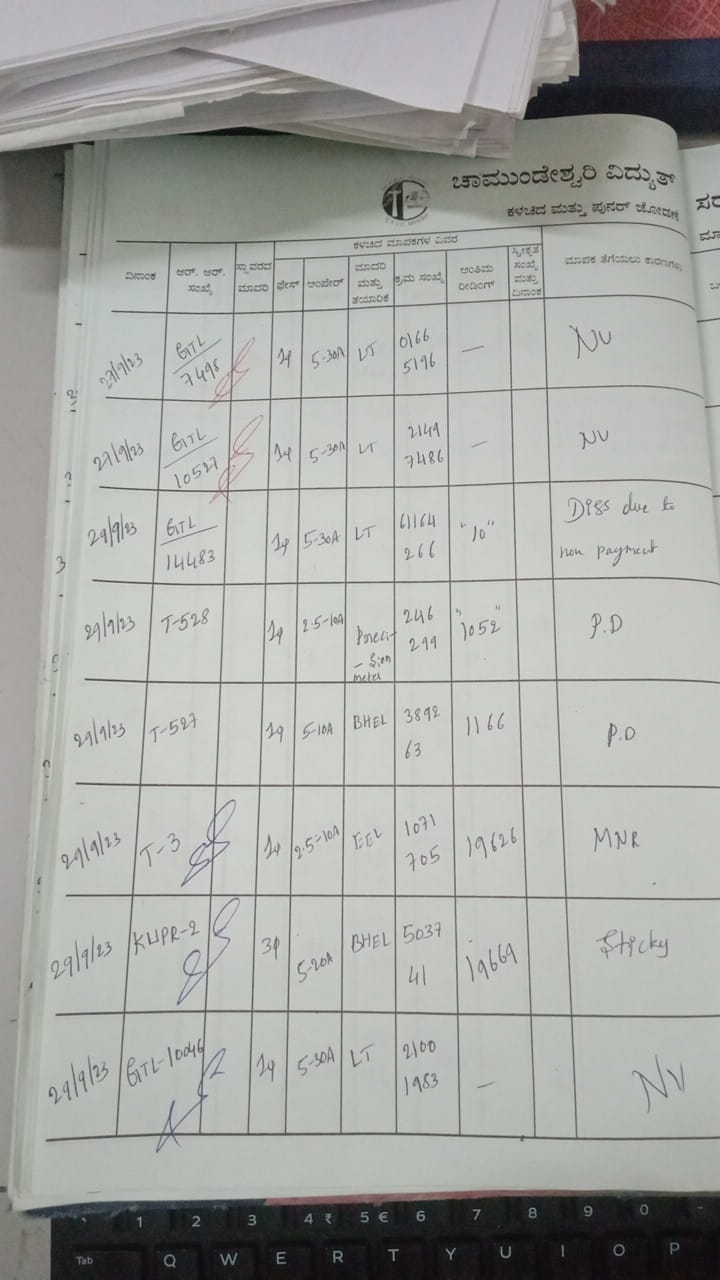 ಚಾಮುಂಡೇಶ್ವರಿ ವಿದ್ಯುತ್
ಕಳಚಿದ ಮತ್ತು ಪುನರ್ ಜೋಡಣೆ
ಸರ
ಮಾ
ಕಳಚಿದ ಮಾಪಕಗಳ ವಿವರ
ದಿನಾಂಕ ಆರ್. ಆರ್. ಸಂಖ್ಯೆ ಸ್ಥಾವರದ ಮಾದರಿ ಫೇಸ್ ಆಂಪೇರ್ ಮಾದರಿ ಮತ್ತು ತಯಾರಿಕೆ ಕ್ರಮ ಸಂಖ್ಯೆ ಅಂತಿಮ ರೀಡಿಂಗ್ ಸ್ವೀಕೃತ ಸಂಖ್ಯೆ ಮತ್ತು ದಿನಾಂಕ ಮಾಪಕ ತೆಗೆಯಲು ಕಾರಣಗಳು
27/9/23 GTL/7498 1φ 5-30A LT 0166 5196 — NV
27/9/23 GTL/10527 1φ 5-30A LT 2149 7486 — NV
3 29/9/23 GTL/14483 1φ 5-30A LT 61164 266 "10" Diss due to non payment
29/9/23 T-528 1φ 2.5-10A Preci-sion meter 246 299 "1052" P.D
29/9/23 T-527 1φ 5-10A BHEL 3892 63 1166 P.D
29/9/23 T-3 1φ 2.5-10A EEL 1071 705 19626 MNR
29/9/23 KUPR-2 3φ 5-20A BHEL 5037 41 19669 Sticky
29/9/23 GTL-10046 1φ 5-30A LT 2100 1983 — NV
1 2 3 4 ₹ 5 € 6 7 8 9 0 -
Tab Q W E R T Y U I O P